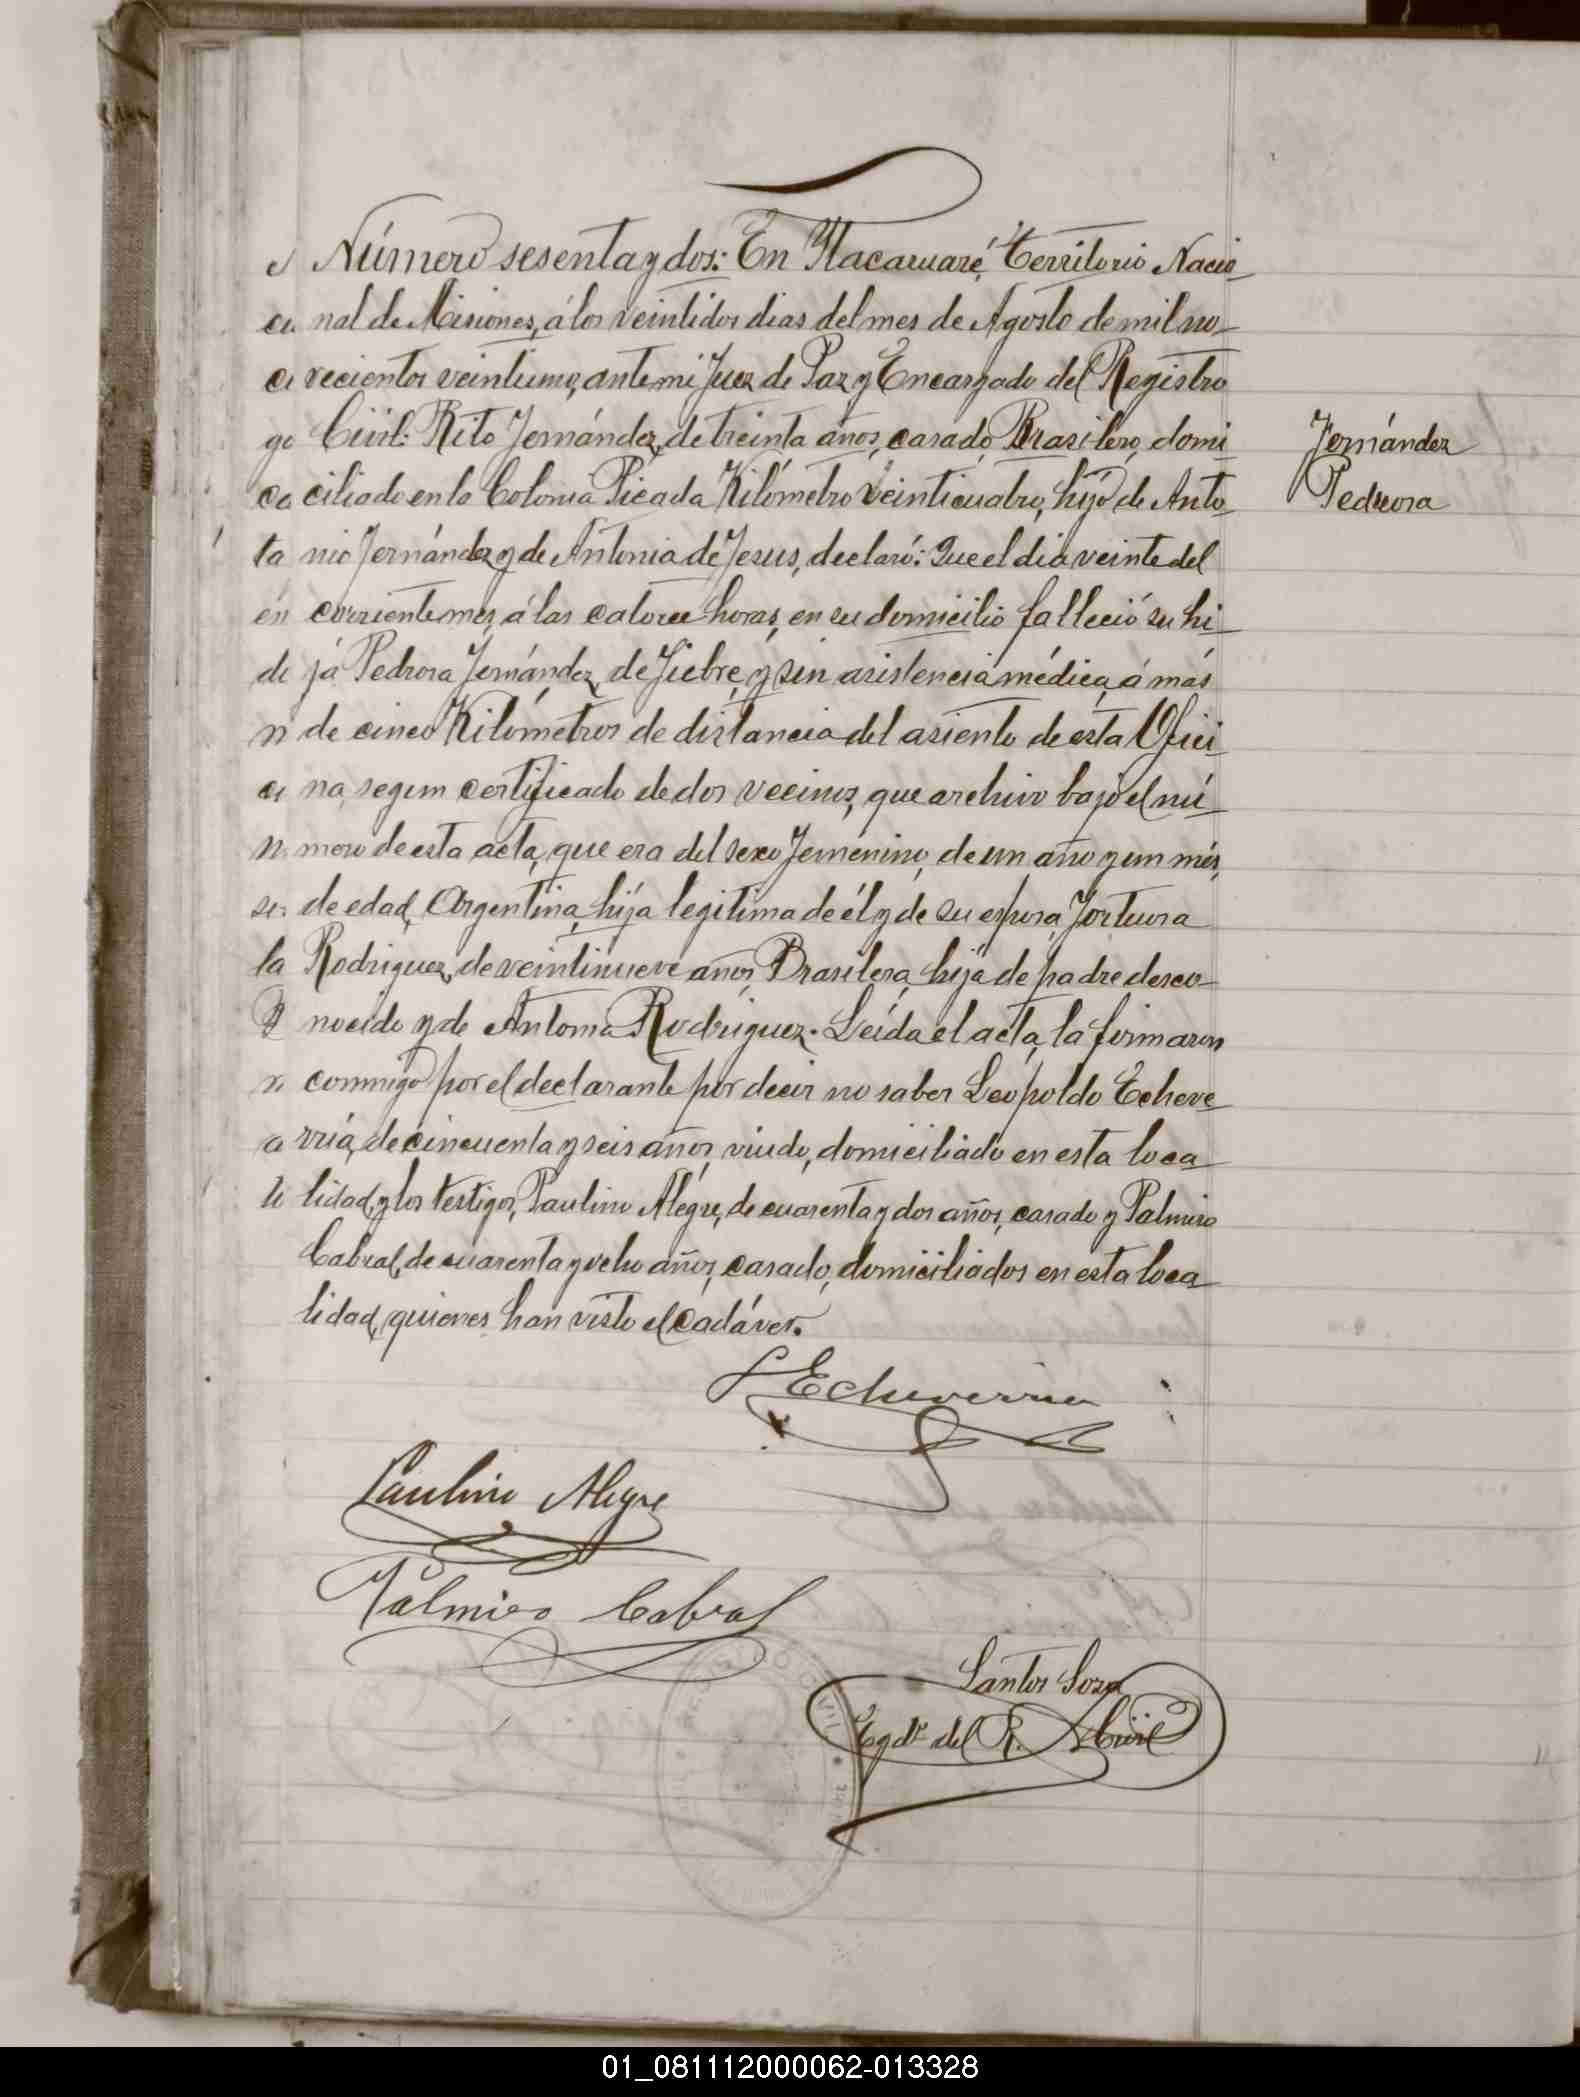 Número sesenta y dos: En Itacaruaré, Territorio Nacio-
nal de Misiones, á los veintidos dias del mes de Agosto de mil no-
vecientos veintiuno, ante mi Juez de Paz y Encargado del Registro
Civil: Rito Fernández, de treinta años, casado, Brasilero, domi-
ciliado en la Colonia Picada Kilómetro veinticuatro, hijo de Anto-
nio Fernández y de Antonia de Jesus, declaró: Que el dia veinte del
corriente mes, á las catorce horas, en su domicilio falleció su hi-
ja Pedrosa Fernández, de fiebre, y sin asistencia médica, á más
de cinco Kilómetros de distancia del asiento de esta Ofici-
na, segun certificado de dos vecinos, que archivo bajo el nú-
mero de esta acta, que era del sexo femenino, de un año y un mes,
de edad, Argentina, hija legitima de él y de su esposa, Fortuosa
Rodriguez, de veintinueve años, Brasilera, hija de padre desco-
nocido y de Antonia Rodriguez. Leída el acta, la firmaron
conmigo por el declarante por decir no saber Leopoldo Echeve-
rria, de cincuenta y seis años, viudo, domiciliado en esta loca-
lidad, y los testigos, Paulino Alegre, de cuarenta y dos años, casado y Palmiro
Cabral, de cuarenta y ocho años, casado, domiciliados en esta loca-
lidad, quienes han visto el cadáver.
Fernández
Pedrosa
L Echeverria
Paulino Alegre
Palmiro Cabral
Santos Sosa
Egdo. del R. Civil
01_081112000062-013328